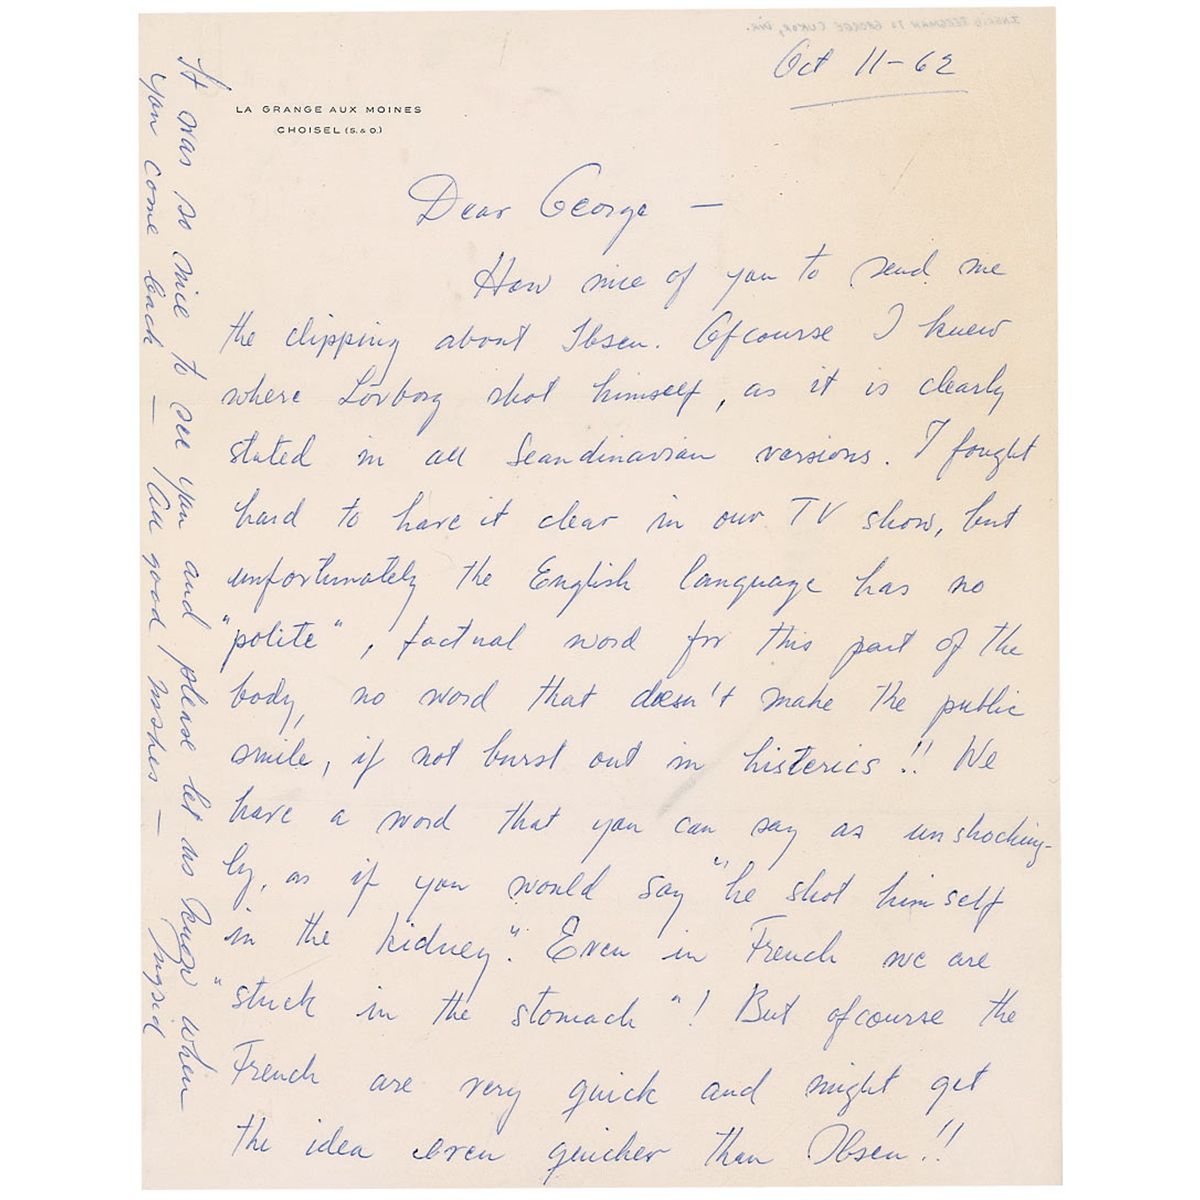 INGRID BERGMAN TO GEORGE CUKOR, DIR.
Oct 11-62
LA GRANGE AUX MOINES
CHOISEL (S. & O.)
Dear George —
How nice of you to send me
the clipping about Ibsen. Ofcourse I knew
where Lövborg shot himself, as it is clearly
stated in all Scandinavian versions. I fought
hard to have it clear in our TV show, but
unfortunately the English language has no
"polite", factual word for this part of the
body, no word that doesn't make the public
smile, if not burst out in histerics!! We
have a word that you can say as unshocking-
ly, as if you would say "he shot himself
in the kidney". Even in French we are
"stuck in the stomach"! But ofcourse the
French are very quick and might get
the idea even quicker than Ibsen!!
It was so nice to see you and please let us know when
you come back — All good wishes — Ingrid